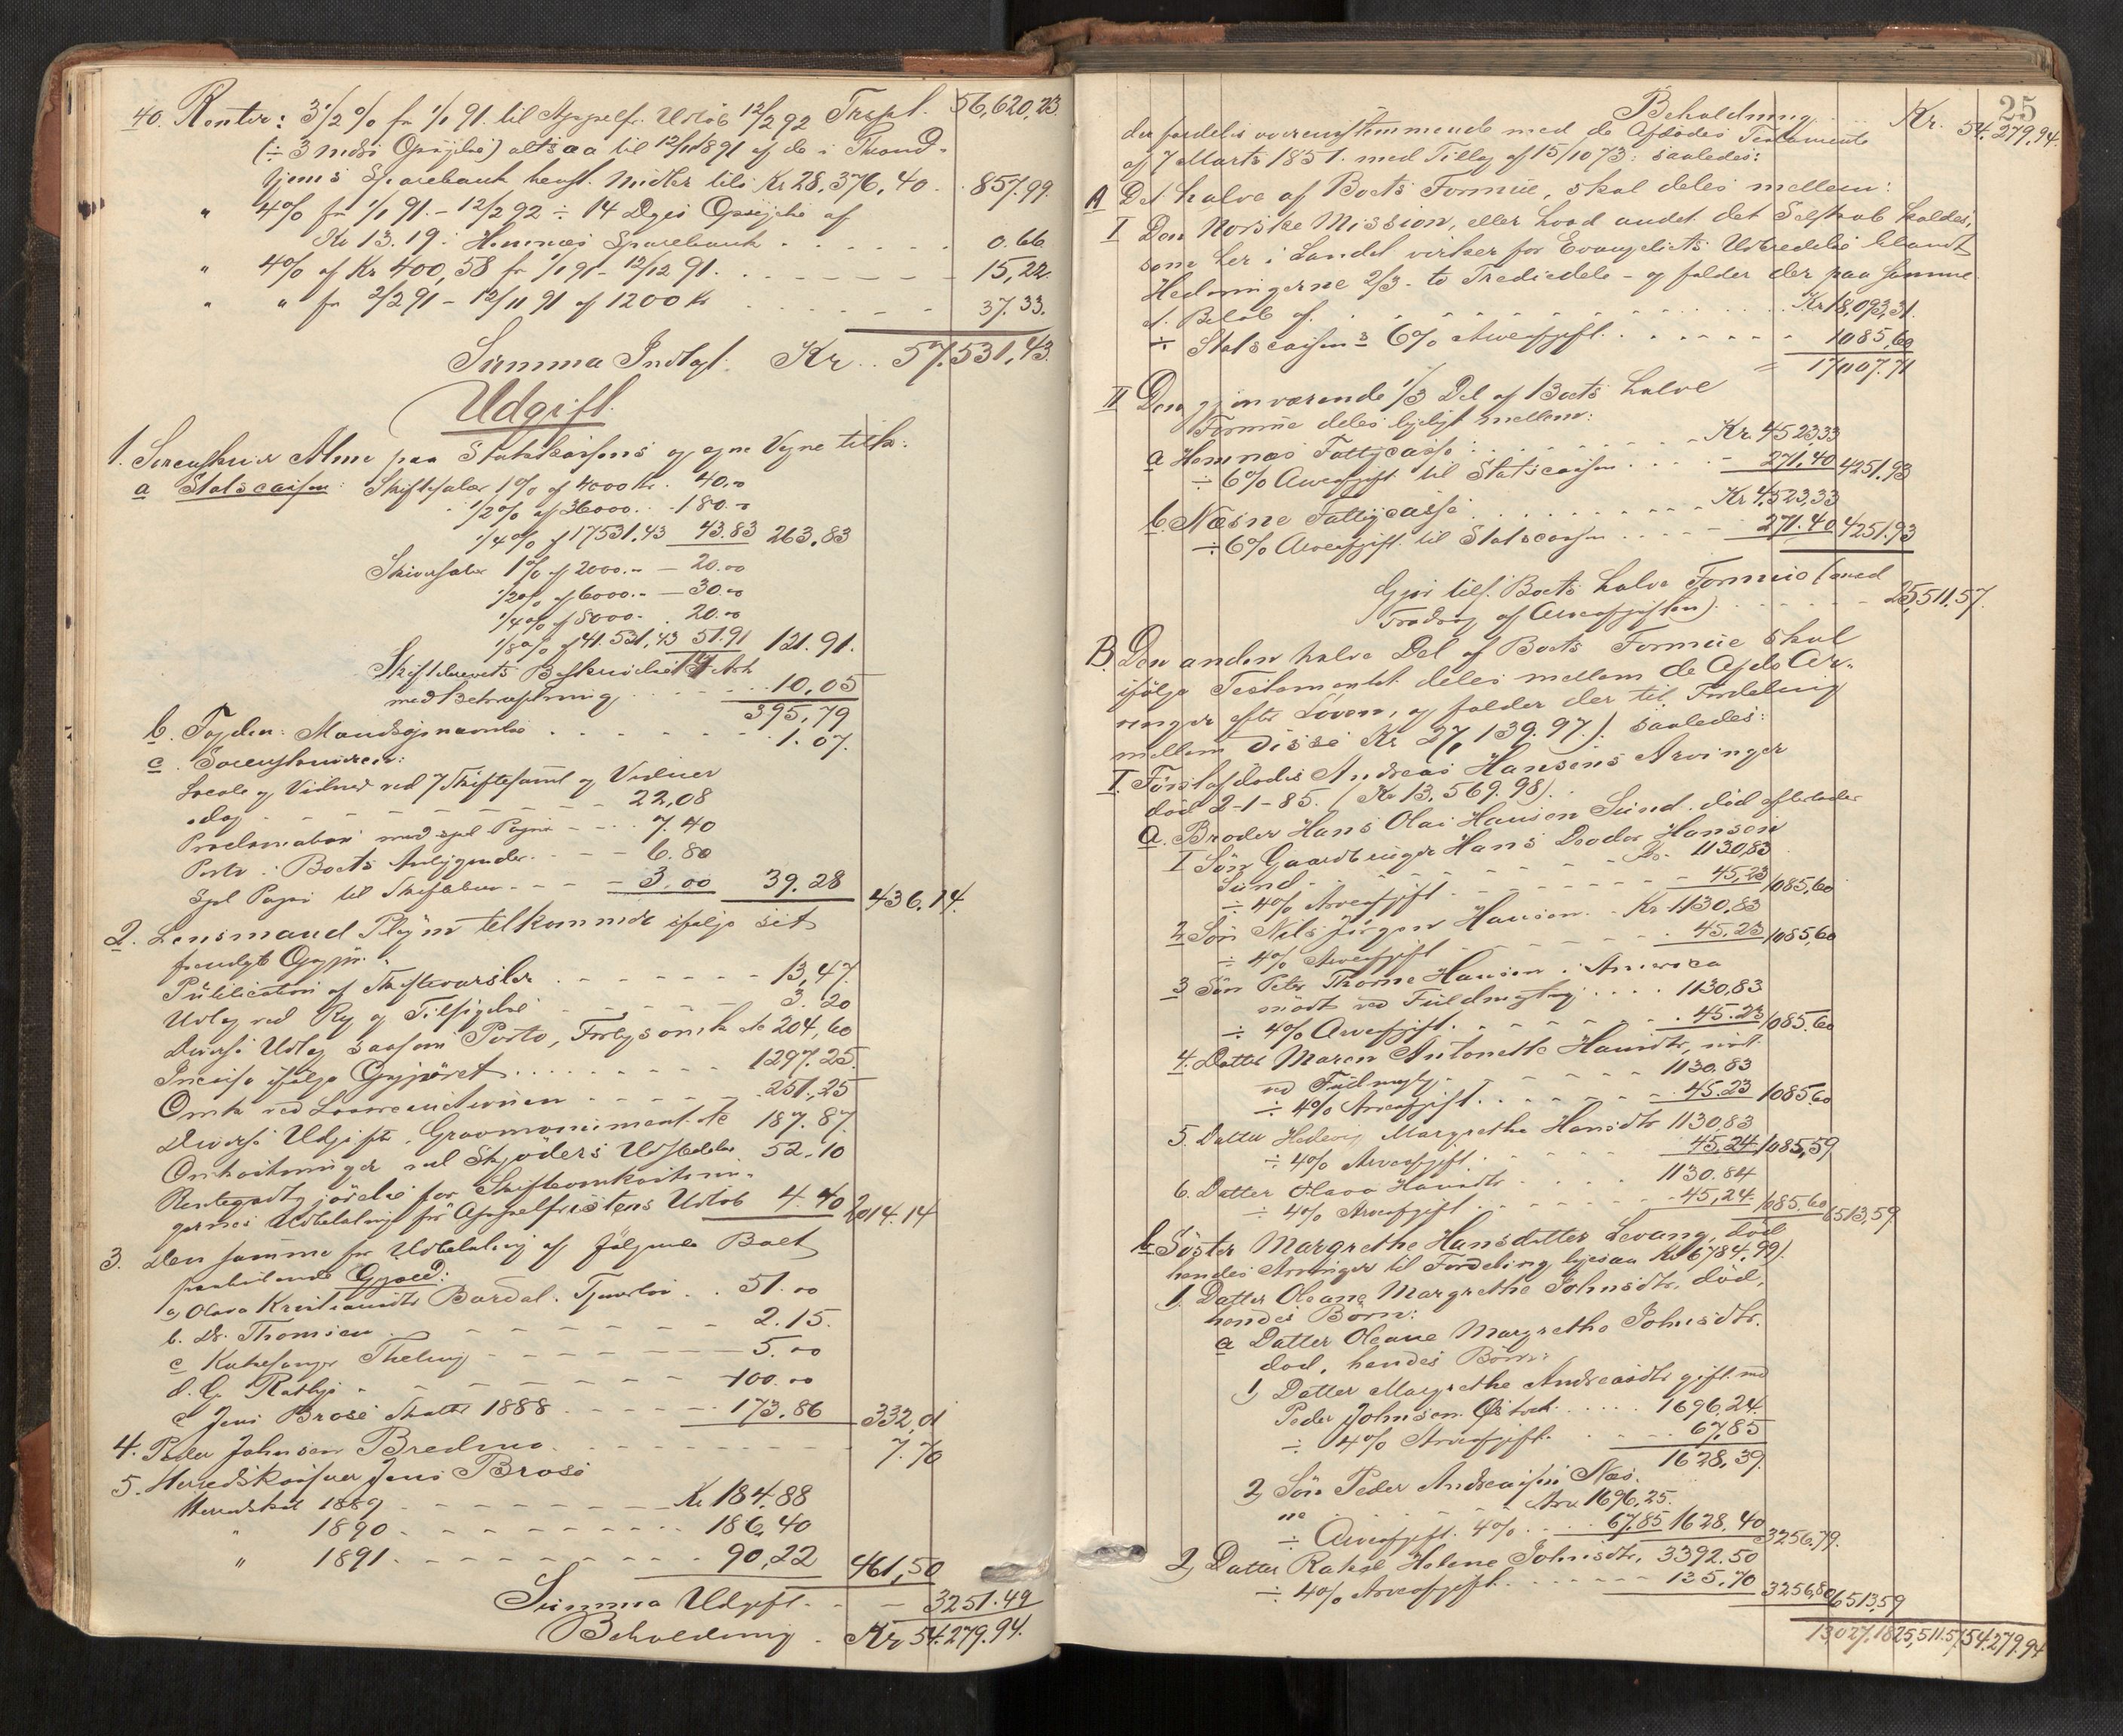 40. Renter: 3 1/2 % fr 1/1 91. til Appelfr. Udløb 12/2 92 Trspt. 56,620,23.
(÷ 3 mdrs Opsigelse) altsaa til 12/11 1891 af de i Thrond-
hjems Sparebank henst. Midler tils. Kr 28,376,40. 857.99.
" 4% fr 1/1 91. - 12/2 92 ÷ 14 Dges Opsigelse af
Kr 13.19 i Hemnæs Sparebank 0.66
" 4% af Kr 400,58 fr 1/1 91 - 12/12 91. 15,22.
" " fr 2/2 91 - 12/11 91 af 1200 Kr 37.33.
Summa Indtægt. Kr. 57.531,43.
Udgift.
1. Sorenskriver Alme paa Statskassens og egne Vegne tilk:
a Statscassen: Skiftesalær 1% af 4000 Kr. 40.00
1/2% af 36000. 180.00
1/4% af 17531.43 43.83 263.83
Skriversalær 1% af 2000.00 20.00
1/2% af 6000.00 30.00
1/4% af 8000. 20.00
1/8% af 41.531,43 51.91 121.91.
Skiftebrevets Beskrivelse Ark
med Bekræftning 10,05
395,79
b. Fogden: 1.07.
c. Sorenskriveren:
Locale og Vidner ved 7 Skiftesaml og Vidner
idag 22,08
Proclamation med spl Papir 7.40
Porto i Boets Anliggender 6.80
Spl Papir til Skiftebrev 3.00 39.28 436.14.
2. Lensmand Pleym tilkommer ifølge sit
fremlagte Opgjør.
Publication af Skiftevarsler 13,47.
Udlæg ved Reg og Tilsigelse 3.20
Diverse Udlæg saasom Porto, 204,60
Incasso ifølge Opgjøret 1297.25.
Omk ved 251,25
Diverse Udgifter. Gravmonument etc 187.87.
Omkostninger ved Skjøders Udstedelse 52.10
Rentegodtgjørelse for Skifteomkostnin-
gernes Udbetaling før Appelfristens Udløb 4.40 2014.14
3. Den samme for Udbetaling af følgende Boet
paahvilende Gjæld:
a, Olava Kristiansdtr Bardal. Tjenerløn 51.00
b. Dr. Thomsen 2.15.
c Kirkesanger 5.00
d. G. 100.00
e Jens Brose Skatter 1888 173.86 332,01
4. Peder Johnsen Bredmo 7.70
5. Herredskasserer Jens Brose
Herredskat 1889 Kr 184.88
" 1890. 186,40
" 1891. 90,22 461,50
Summa Udgift. 3251.49
Beholdning. Kr 54.279.94.
25
Beholdning Kr. 54.279.94.
der fordeles overensstemmende med de Afdødes Testamente
af 7 Marts 1851. med Tillæg af 15/10 73: saaledes:
A Det halve af Boets Formue, skal deles mellem:
I Den Norske Mission, eller hvad andet det Selskab kaldes,
som her i Landet virker for Evangeliets Udbredelse blandt
Hedningerne 2/3 - to Trediedele - og falder der paa samme
et Beløb af Kr 18,093,31.
÷ Statscassens 6% Arveafgift 1085,60
= 17007.71
II Den gjenværende 1/3 Del af Boets halve
Formue deles ligeligt mellem:
a Hemnæs Fattigcasse: Kr. 4523,33
÷ 6% Arveafgift til Statscassen 271.40 4251.93
b. Næsne Fattigcasse Kr 4.523,33
÷ 6% Arveafgift til Statscassen 271.40 4251.93
Gjør tils. Boets halve Formue (med
Fradrag af Arveafgiften) 25,511.57.
B. Den anden halve Del af Boets Formue skal
ifølge Testamentet deles mellem de Afdes Ar-
vinger efter Loven, og falder der til Fordeling
mellem disse Kr 27,139.97.) saaledes:
I. Førstafdødes Andreas Hansens Arvinger
død 2-1-85. (Kr 13.569.98).
a. Broder Hans Olai Hansen Sund. død efterlader
1 Søn Gaardbruger Hans Hansen
Sund Kr. 1130,83
÷ 4% Arveafgift 45,23 1085,60
2 Søn Nils Jørgen Hansen Kr 1130,83
÷ 4% Arveafgift 45.23 1085,60
3 Søn Peter Hansen i America
mødt ved Fuldmægtig 1130,83
÷ 4% Arveafgift. 45.23 1085.60
4. Datter Maren Antonette Hansdtr, mødt
ved Fuldmægtg. 1130.83
÷ 4% Arveafgift 45.23 1085.60
5. Datter Hedevig Margrethe Hansdtr 1130,83
÷ 4% Arveafgift 45,24 1085,59
6. Datter Olava Hansdtr 1130.84
÷ 4% Arveafgift 45,24. 1085.60 6513,59
b. Søster Margrethe Hansdatter Levang, død
hendes Arvinger til Fordeling ligesaa Kr 6784.99).
1. Datter Oleane Margrethe Johnsdtr. død,
hendes Børn:
a Datter Oleane Margrethe Johnsdtr.
død, hendes Børn:
1) Datter Margrethe Andreasdtr gift med
Peder Johnsen 1696,24.
÷ 4% Arveafgift 67,85
1628,39.
2, Søn Peder Andreassen Næs.
Arv 1696,25.
÷ Arveafgift 4% 67.85 1628,40 3256.79.
2, Datter Rakel Helene Johnsdtr, 3392.50
÷ 4% Arveafgift 135.70 3256,80 6513,59
13,027.18 25,511.57 54.279.94